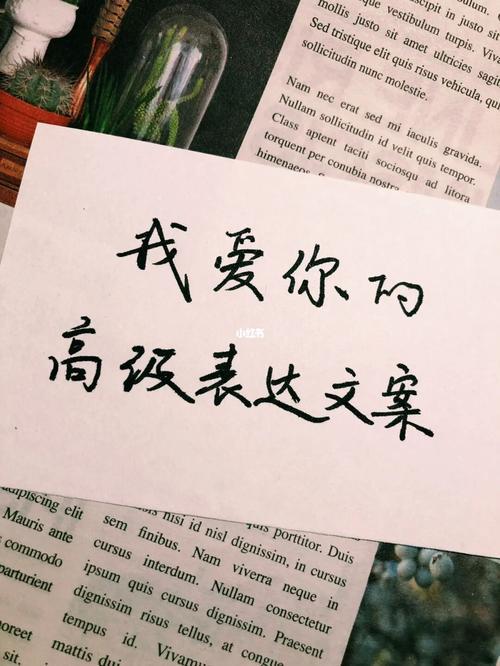 mollis justo sit amet ultricies sagittis
Sed tristique elit quis risus vehicula, quis
sollicitudin nunc molestie.
Nam nec erat sed mi iaculis gravida.
Nullam sollicitudin id velit quis tempor.
Class aptent taciti sociosqu ad litora
torquent per conubia nostra
himenaeos.
我爱你的
小红书
高级表达文案
adipiscing elit sem nisi id nisl dignissim
porttitor. Duis
Mauris ante sem finibus. Nam viverra neque in
commodo cursus interdum. Nullam consectetur
parturient ipsum quis cursus dignissim. Praesent
dignissim risus tellus, at congue
tempus id. Vivamus
laoreet mattis